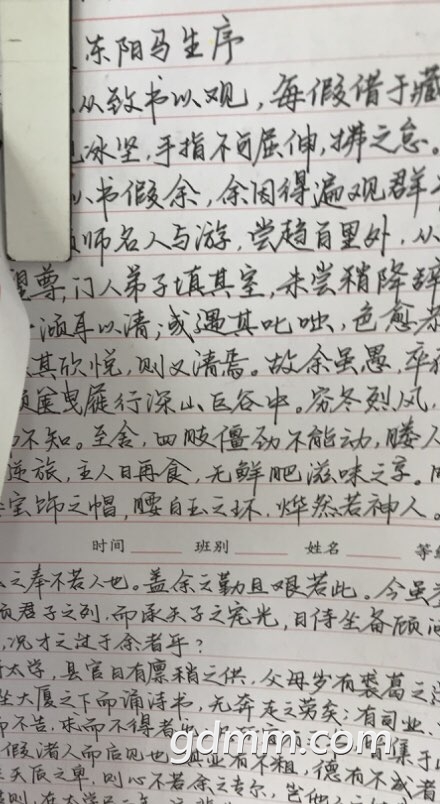 东阳马生序
从致书以观，每假借于藏
冰坚，手指不可屈伸，拂之怠。
书假余，余因得遍观群
师名人与游，尝趋百里外，从
望尊，门人弟子填其室，未尝稍降辞
倾耳以请；或遇其叱咄，色愈恭
其欣悦，则又请焉。故余虽愚，卒
箧曳屣行深山巨谷中。穷冬烈风，
不知。至舍，四肢僵劲不能动，媵人
逆旅，主人日再食，无鲜肥滋味之享。
宝饰之帽，腰白玉之环，烨然若神人。
时间 班别 姓名 等级
之奉不若人也。盖余之勤且艰若此。今虽
君子之列，而承天子之宠光，日侍坐备顾问
况才之过于余者乎？
太学，县官日有廪稍之供，父母岁有裘葛之
坐大厦之下而诵诗书，无奔走之劳矣；有司业、
而不告，求而不得者也
假诸人而后见也 业有不精，德有不成者
天质之卑，则心不若余之专尔，岂他人
gdmm.com